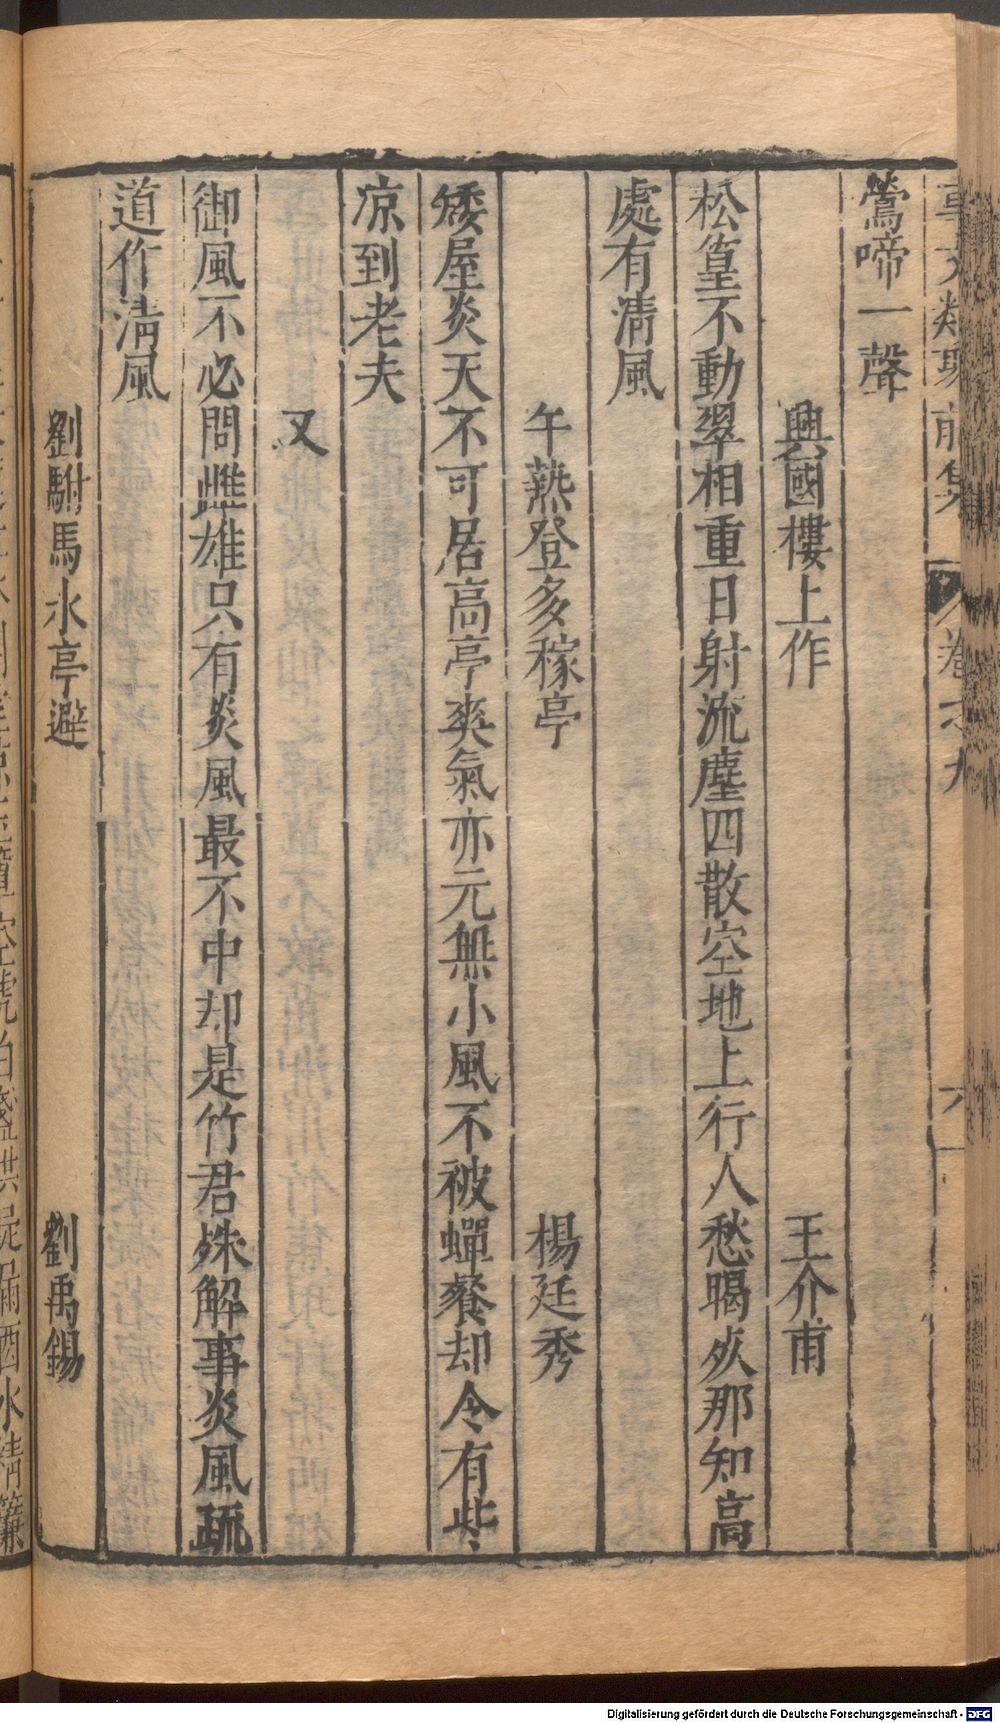 事文類聚前集 卷之九 六
鶯啼一聲
興國樓上作 王介甫
松篁不動翠相重日射流塵四散空地上行人愁暍死那知高
處有清風
午熱登多稼亭 楊廷秀
矮屋炎天不可居高亭爽氣亦元無小風不被蟬餐却令有些
凉到老夫
又
御風不必問雌雄只有炎風最不中却是竹君姝解事炎風疏
道作清風
劉駙馬水亭避 劉禹錫
Digitalisierung gefördert durch die Deutsche Forschungsgemeinschaft - DFG